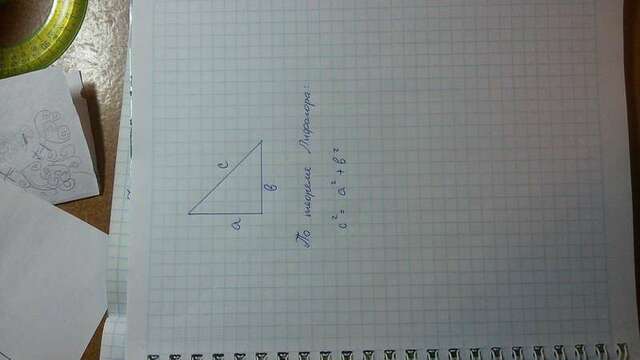 c
a
в
По теореме Пифагора:
c² = a² + в²